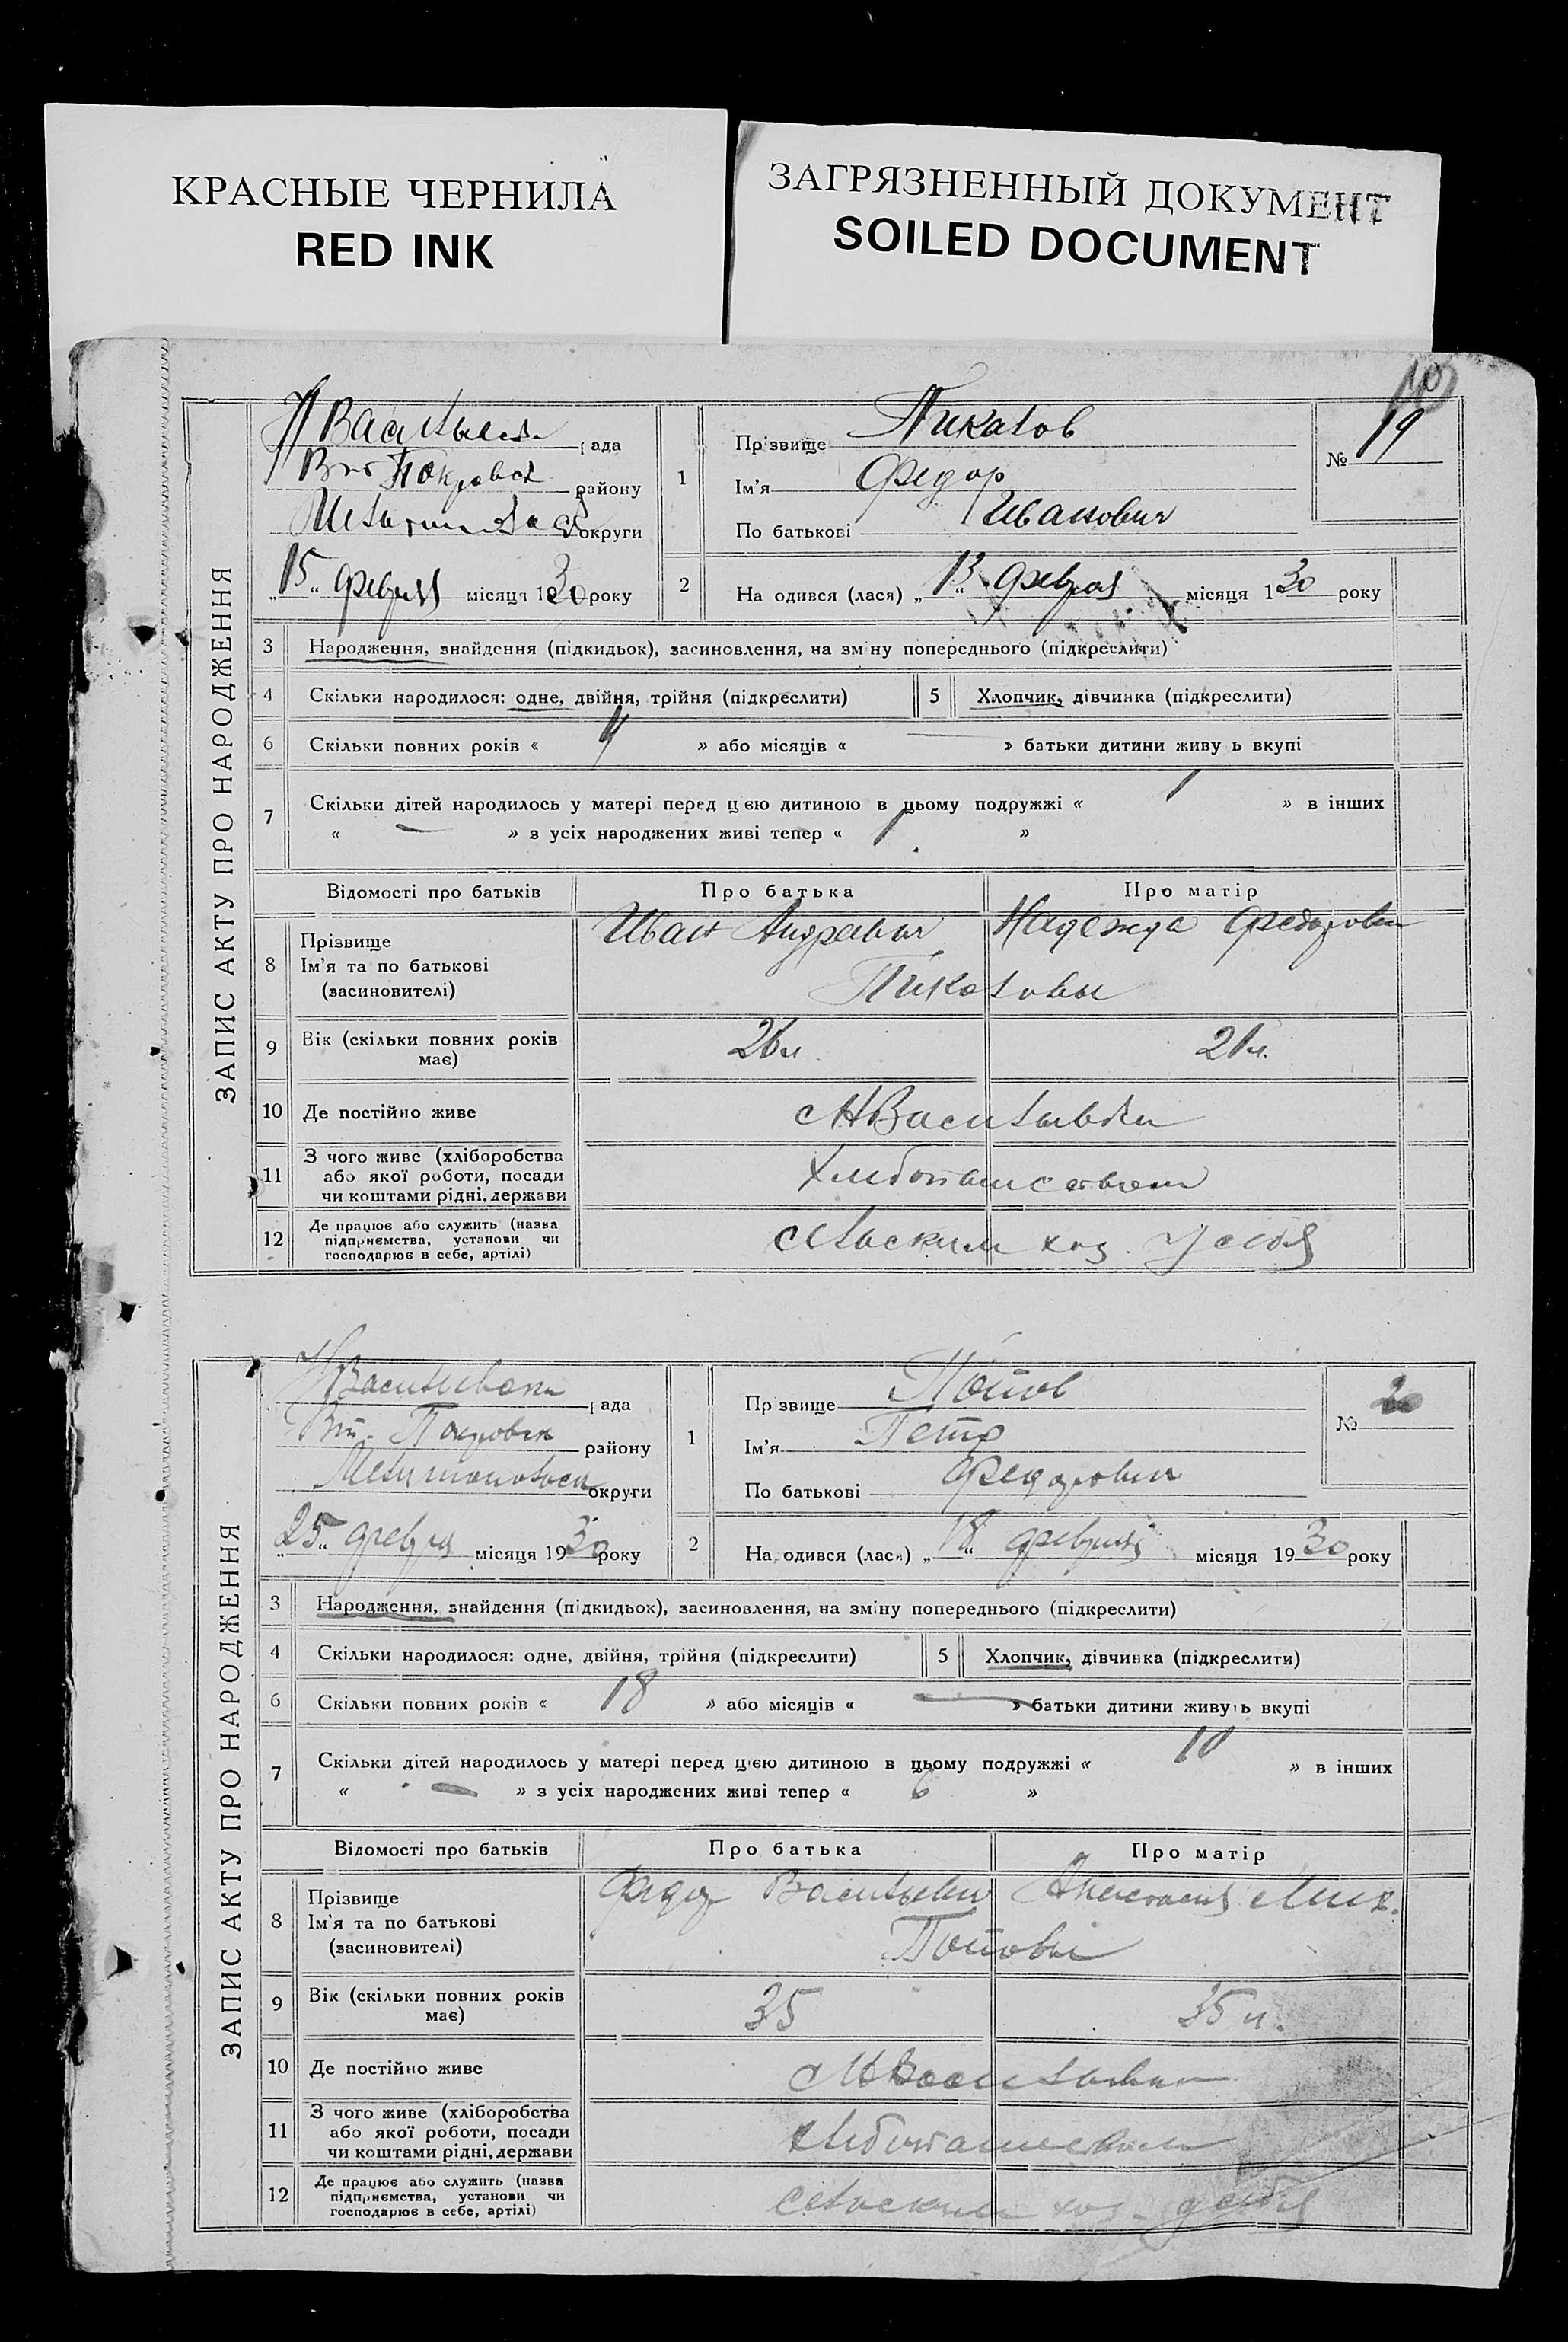 КРАСНЫЕ ЧЕРНИЛА
RED INK
ЗАГРЯЗНЕННЫЙ ДОКУМЕНТ
SOILED DOCUMENT
ЗАПИС АКТУ ПРО НАРОДЖЕННЯ
рада
району
Мелитопольской округи
„15“ февраля місяця 1930 року
1
Прізвище
Ім'я Федор
По батькові Иванович
№ 19
2
На одився (лася) „13“ февраля місяця 1930 року
3 Народження, знайдення (підкидьок), засиновлення, на зміну попереднього (підкреслити)
4 Скільки народилося: одне, двійня, трійня (підкреслити) 5 Хлопчик, дівчинка (підкреслити)
6 Скільки повних років « 4 » або місяців « — » батьки дитини живу ь вкупі
7 Скільки дітей народилось у матері перед цією дитиною в цьому подружжі « 1 » в інших
« — » з усіх народжених живі тепер « 1 »
Відомості про батьків Про батька Про матір
8 Прізвище
Ім'я та по батькові
(засиновителі)
Иван Андреевич Надежда Федоровна
9 Вік (скільки повних років має) 26 л. 21 л.
10 Де постійно живе
11 З чого живе (хліборобства
або якої роботи, посади
чи коштами рідні, держави
12 Де працює або служить (назва
підприємства, установи чи
господарює в себе, артілі)
ЗАПИС АКТУ ПРО НАРОДЖЕННЯ
рада
району
Мелитопольской округи
„25“ февраля місяця 1930 року
1
Прізвище Попов
Ім'я Петр
По батькові Федорович
№ 20
2
На одився (лася) „18“ февраля місяця 1930 року
3 Народження, знайдення (підкидьок), засиновлення, на зміну попереднього (підкреслити)
4 Скільки народилося: одне, двійня, трійня (підкреслити) 5 Хлопчик, дівчинка (підкреслити)
6 Скільки повних років « 18 » або місяців « — » батьки дитини живуть вкупі
7 Скільки дітей народилось у матері перед цією дитиною в цьому подружжі « 10 » в інших
« — » з усіх народжених живі тепер « 6 »
Відомості про батьків Про батька Про матір
8 Прізвище
Ім'я та по батькові
(засиновителі)
Федор Васильевич Анастасия Мих.
Поповы
9 Вік (скільки повних років має) 35 35 л.
10 Де постійно живе
11 З чого живе (хліборобства
або якої роботи, посади
чи коштами рідні, держави
12 Де працює або служить (назва
підприємства, установи чи
господарює в себе, артілі)